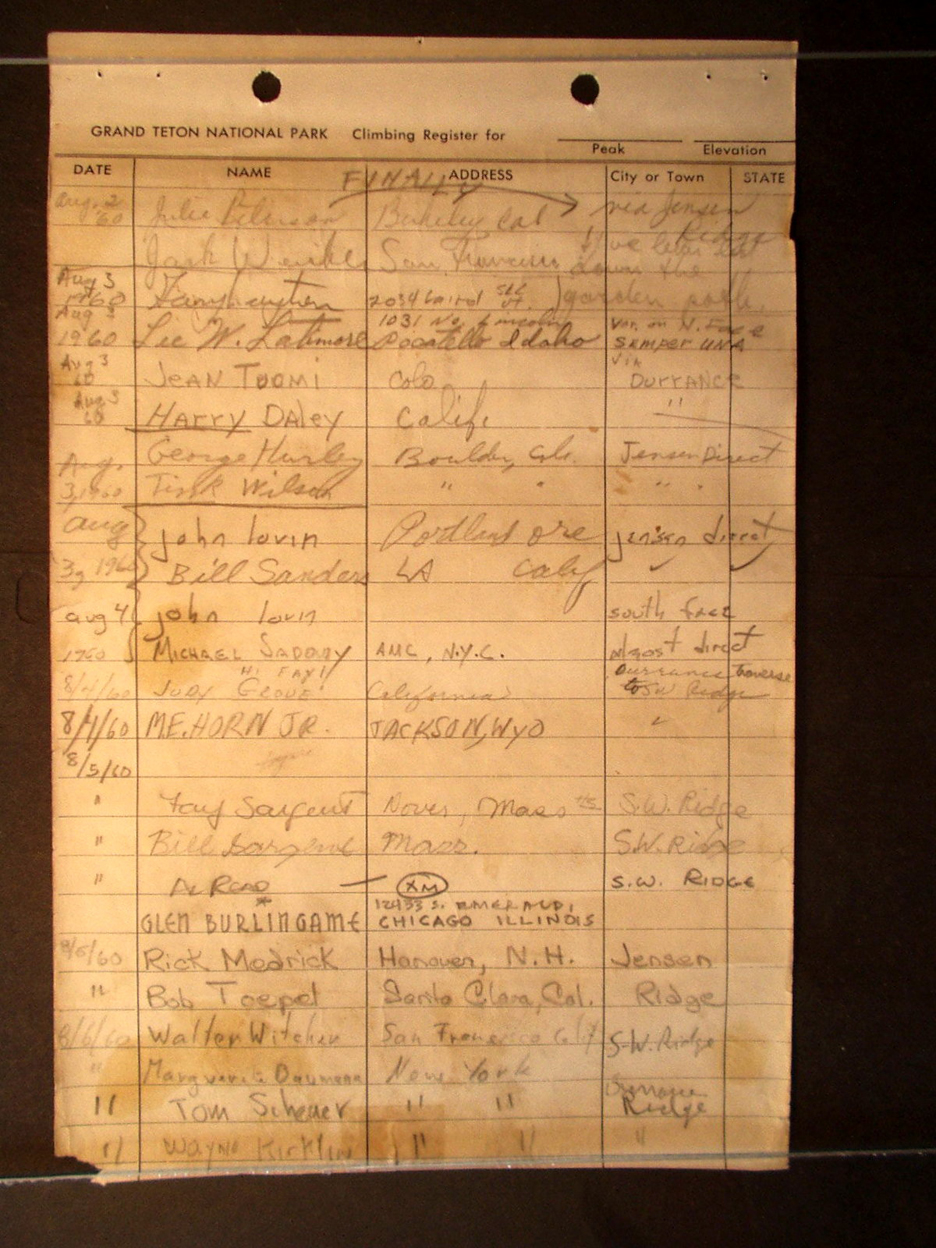 GRAND TETON NATIONAL PARK Climbing Register for
Peak Elevation
DATE NAME ADDRESS City or Town STATE
FINALLY
Aug. 2 '60 Julie Berkeley Cal via Jensen Ridge
Jack San Francisco down the
Aug 3 1960 2034 garden path.
Aug 3 1960 Lee W. 1031 No. Lincoln Pocatello Idaho Var. on N. Face SEMPER UNA
Aug 3 60 JEAN TUOMI Colo VIA DURRANCE
Aug 3 60 HARRY DALEY Calif. "
George Hurley Boulder, Colo. Jensen Direct
Aug. 3, 1960 Tink Wilson " " " "
aug 3, 1960 john lovin Portland ore jensen direct
Bill Sanders LA Calif "
aug 4 john lovin south face
1960 MICHAEL AMC, N.Y.C. almost direct
HI FAY!
8/4/60 JUDY California Durrance traverse to SW Ridge
8/4/60 M.E. HORN JR. JACKSON, WYO "
8/5/60
" Fay Sargent Mass S.W. Ridge
" Bill Sargent Mass. S.W. Ridge
" AL READ — XM S.W. RIDGE
GLEN BURLINGAME 12433 S. EMERALD, CHICAGO ILLINOIS
8/5/60 Rick Medrick Hanover, N.H. Jensen
" Bob Toepel Santa Clara, Cal. Ridge
8/6/60 Walter San Francisco Calif S.W. Ridge
" Marguerite New York
" Tom Scheuer " " Ridge
" Wayne Kicklin " " "